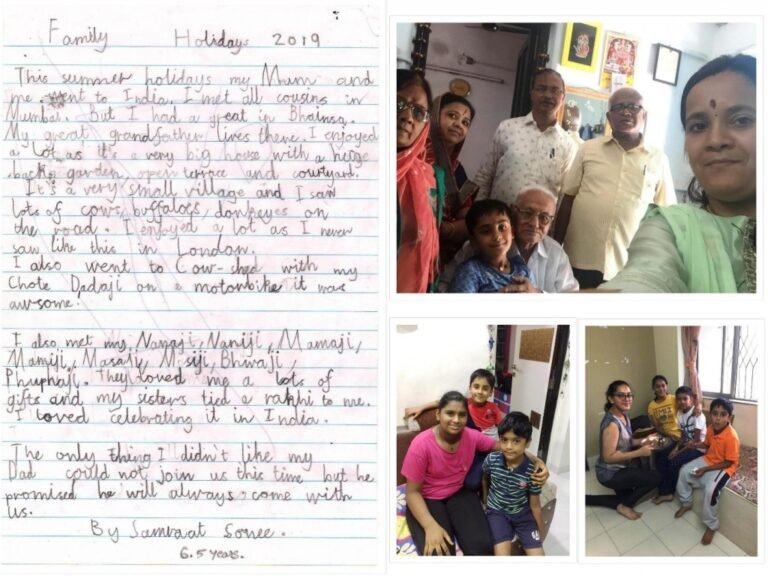 Family Holidays 2019
This summer holidays my Mum and
me went to India. I met all cousins in
Mumbai. But I had a great in Bhainsa.
My great grandfather lives there. I enjoyed
a lot as it's a very big house with a huge
back garden, open terrace and courtyard.
It's a very small village and I saw
lots of cows, buffaloes, donkeyes on
the road. I enjoyed a lot as I never
saw like this in London.
I also went to Cow-shed with my
Chote Dadaji on a motorbike it was
awsome.
I also met my Nanaji, Naniji, Mamaji,
Mamiji, Masaji, Bhuaji,
Phuphaji. They loved me a lots of
gifts and my sisters tied a rakhi to me.
I loved celebrating it in India.
The only thing I didn't like my
Dad could not join us this time but he
promised he will always come with
us.
By Samraat Sonee.
6.5 years.